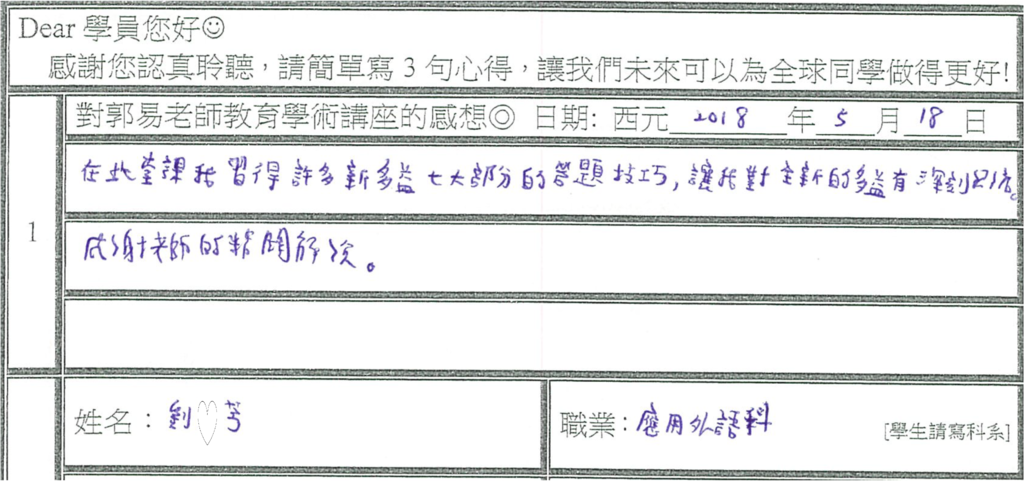 Dear 學員您好☺
感謝您認真聆聽，請簡單寫 3 句心得，讓我們未來可以為全球同學做得更好!
對郭易老師教育學術講座的感想◎ 日期: 西元 2018 年 5 月 18 日
1
在此堂課我習得許多新多益七大部分的答題技巧，讓我對全新的多益有深刻
感謝老師的精闢解說。
姓名：劉♡芳
職業：應用外語科 [學生請寫科系]